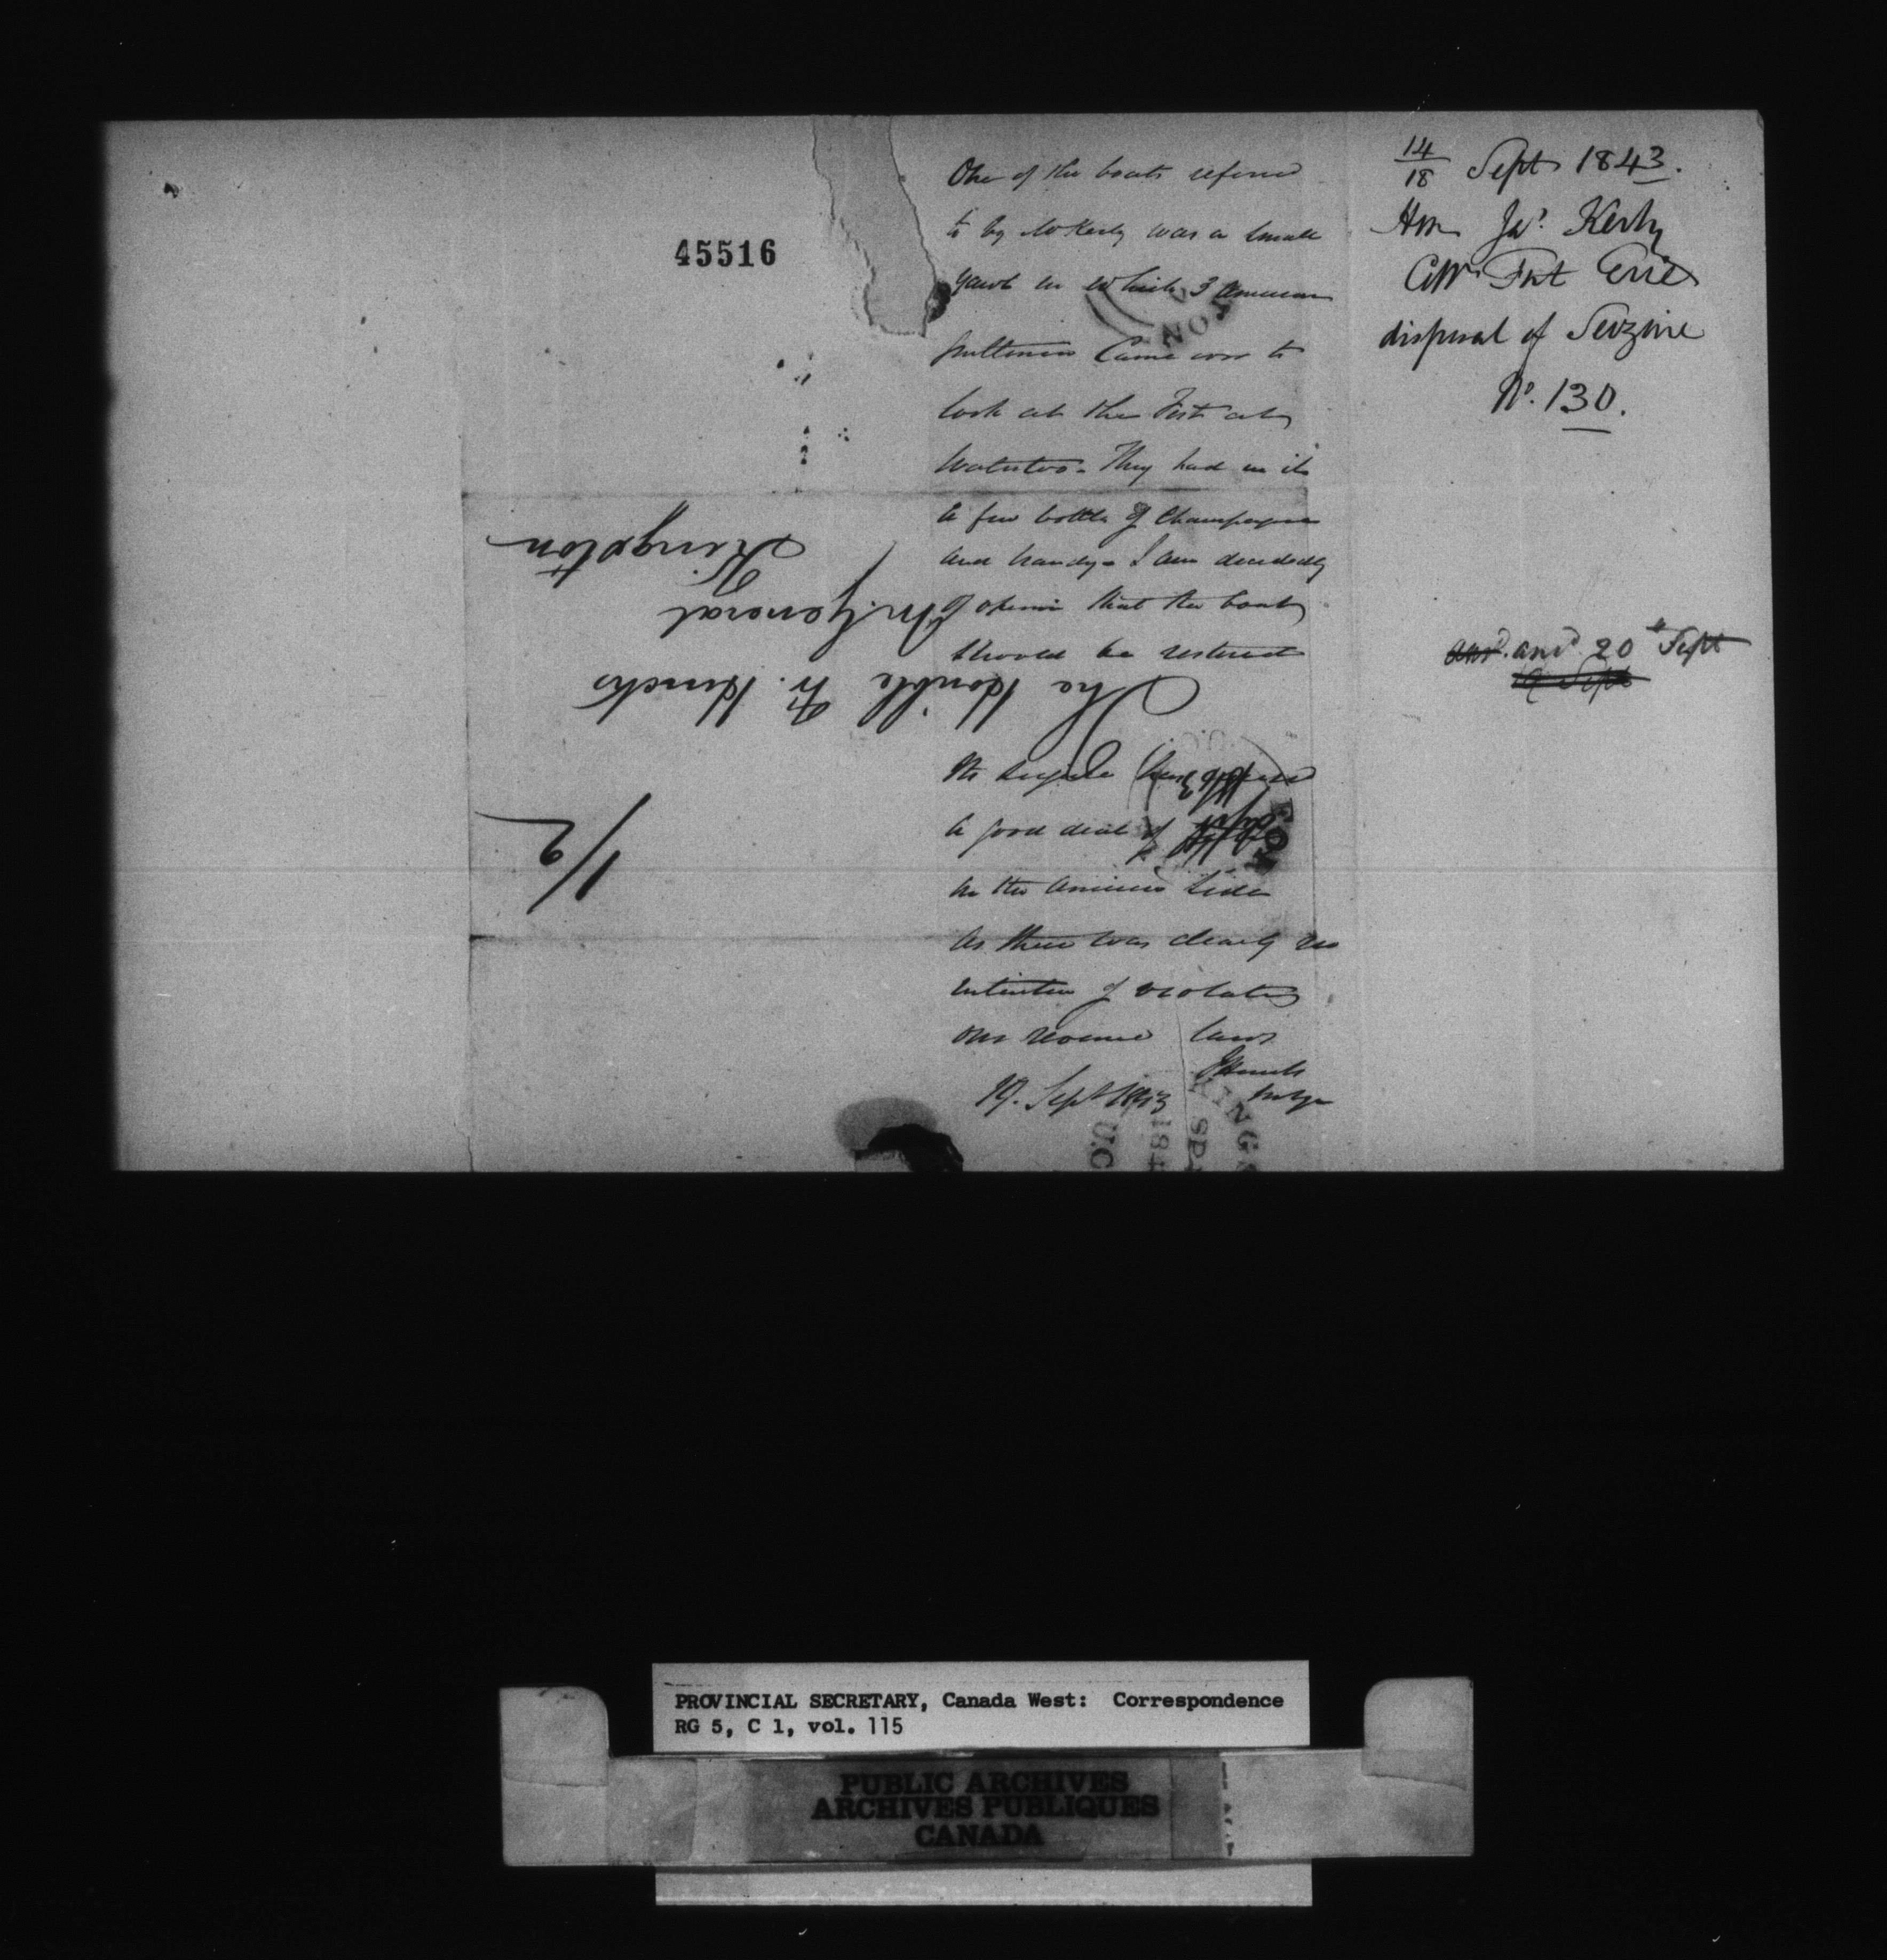 45516
One of the boats referred
to by Mr Kerby was a small
yawl in which 3 American
gentlemen came over to
look at the Fort at
Waterloo. They had in it
a few bottles of Champagne
and brandy. I am decidedly
of opinion that the boat
should be restored
The seizure has
a good deal of
on the American side
as there was clearly no
intention of violating
our revenue laws
FHincks
InsGn
19. Sept 1843
The Honble F. Hincks
In. General
Kingston
1/2
14/18 Sept 1843.
Hon Jas. Kerby
Collr Fort Erie
disposal of Seizure
No. 130.
ansd. 20th Sept
19 Sept
PROVINCIAL SECRETARY, Canada West: Correspondence
RG 5, C 1, vol. 115
PUBLIC ARCHIVES
ARCHIVES PUBLIQUES
CANADA